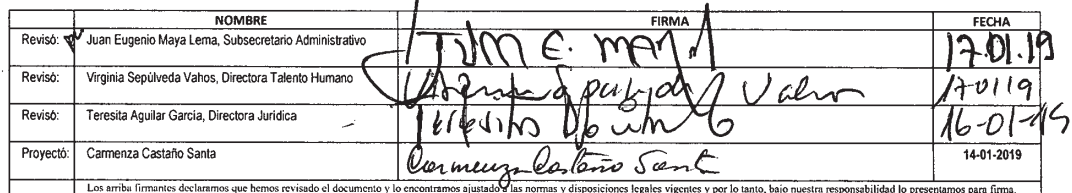 NOMBRE FIRMA FECHA
Revisó: Juan Eugenio Maya Lema, Subsecretario Administrativo JUAN E. MAYA 17.01.19
Revisó: Virginia Sepúlveda Vahos, Directora Talento Humano Virginia Sepúlveda Vahos 170119
Revisó: Teresita Aguilar García, Directora Jurídica Teresita Aguilar G 16-01-19
Proyectó: Carmenza Castaño Santa Carmenza Castaño Santa 14-01-2019
Los arriba firmantes declaramos que hemos revisado el documento y lo encontramos ajustado a las normas y disposiciones legales vigentes y por lo tanto, bajo nuestra responsabilidad lo presentamos para firma.